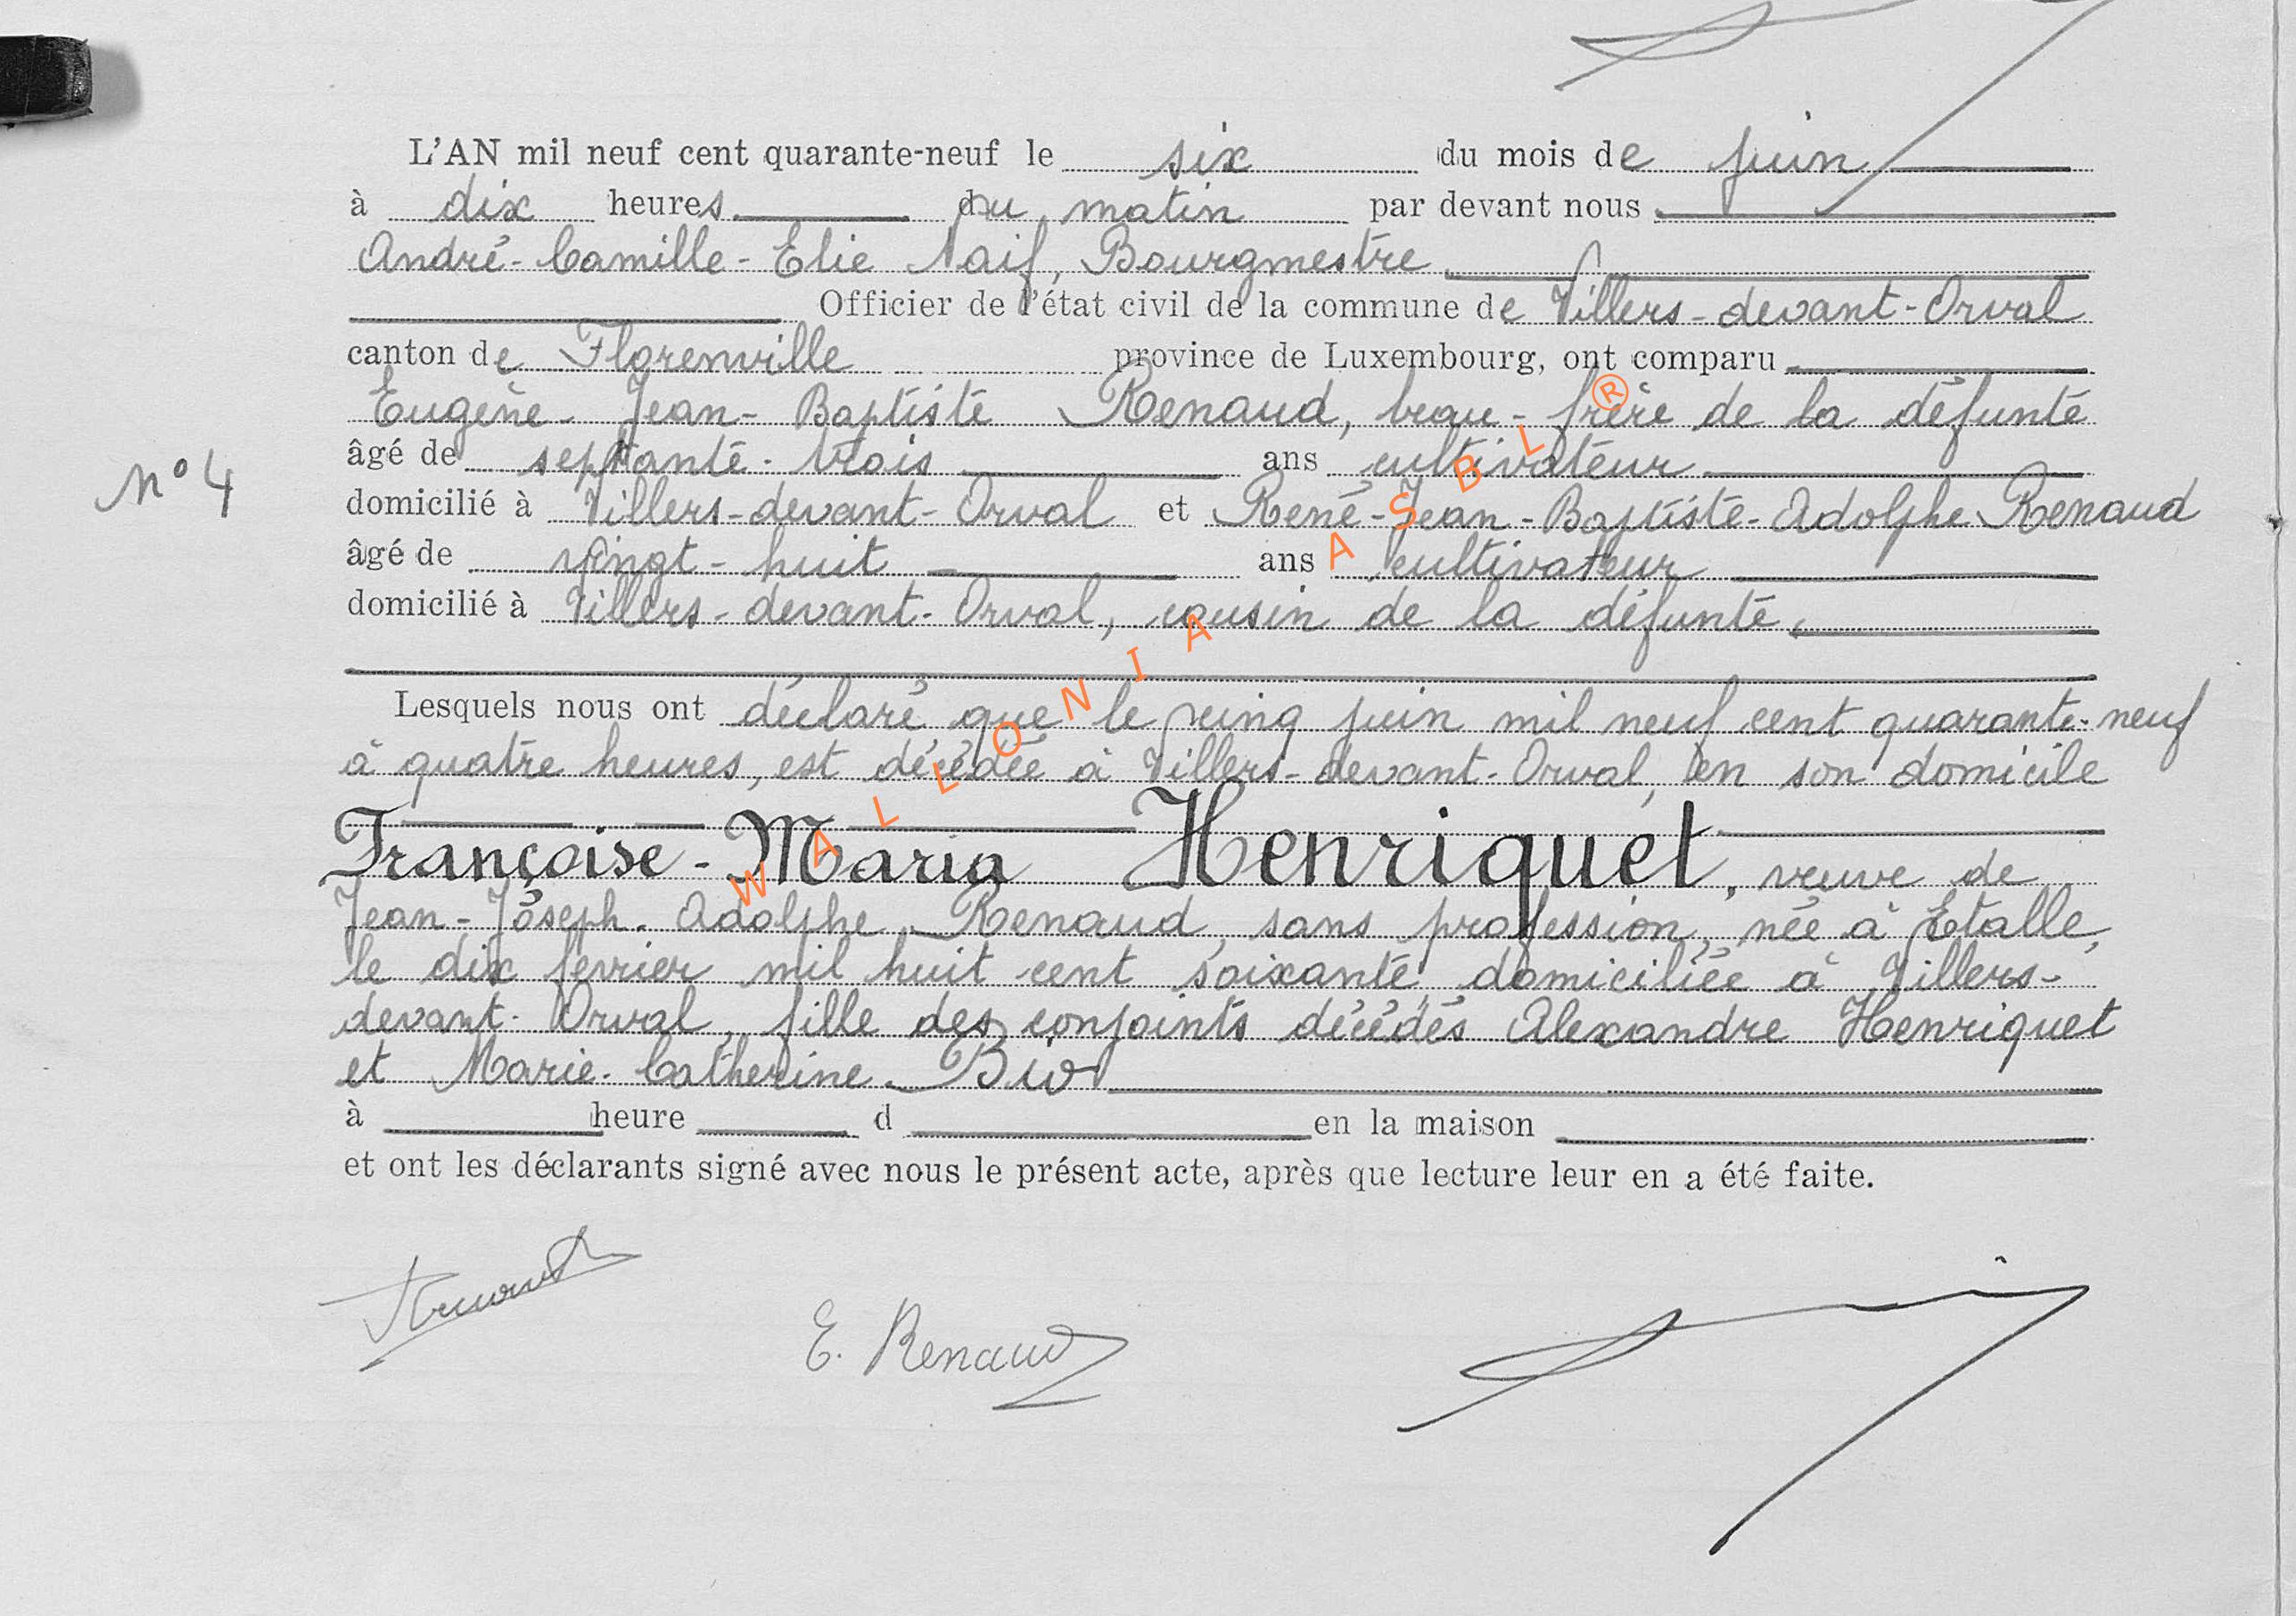 L'AN mil neuf cent quarante-neuf le six du mois de juin
à dix heures du matin par devant nous
André-Camille-Elie Naif, Bourgmestre
Officier de l'état civil de la commune de Villers-devant-Orval
canton de Florenville province de Luxembourg, ont comparu
Eugène-Jean-Baptiste Renaud, beau-frère de la défunte
âgé de septante-trois ans cultivateur
N° 4
domicilié à Villers-devant-Orval et René-Jean-Baptiste-Adolphe Renaud
âgé de vingt-huit ans cultivateur
domicilié à Villers-devant-Orval, cousin de la défunte,
Lesquels nous ont déclaré que le cinq juin mil neuf cent quarante-neuf
à quatre heures, est décédée à Villers-devant-Orval, en son domicile
Françoise-Maria Henriquet, veuve de
Jean-Joseph-Adolphe Renaud, sans profession, née à Etalle,
le dix février mil huit cent soixante domiciliée à Villers-
devant-Orval, fille des conjoints décédés Alexandre Henriquet
et Marie-Catherine Bio
à heure d en la maison
et ont les déclarants signé avec nous le présent acte, après que lecture leur en a été faite.
E. Renaud
WALLONIA ASBL ®